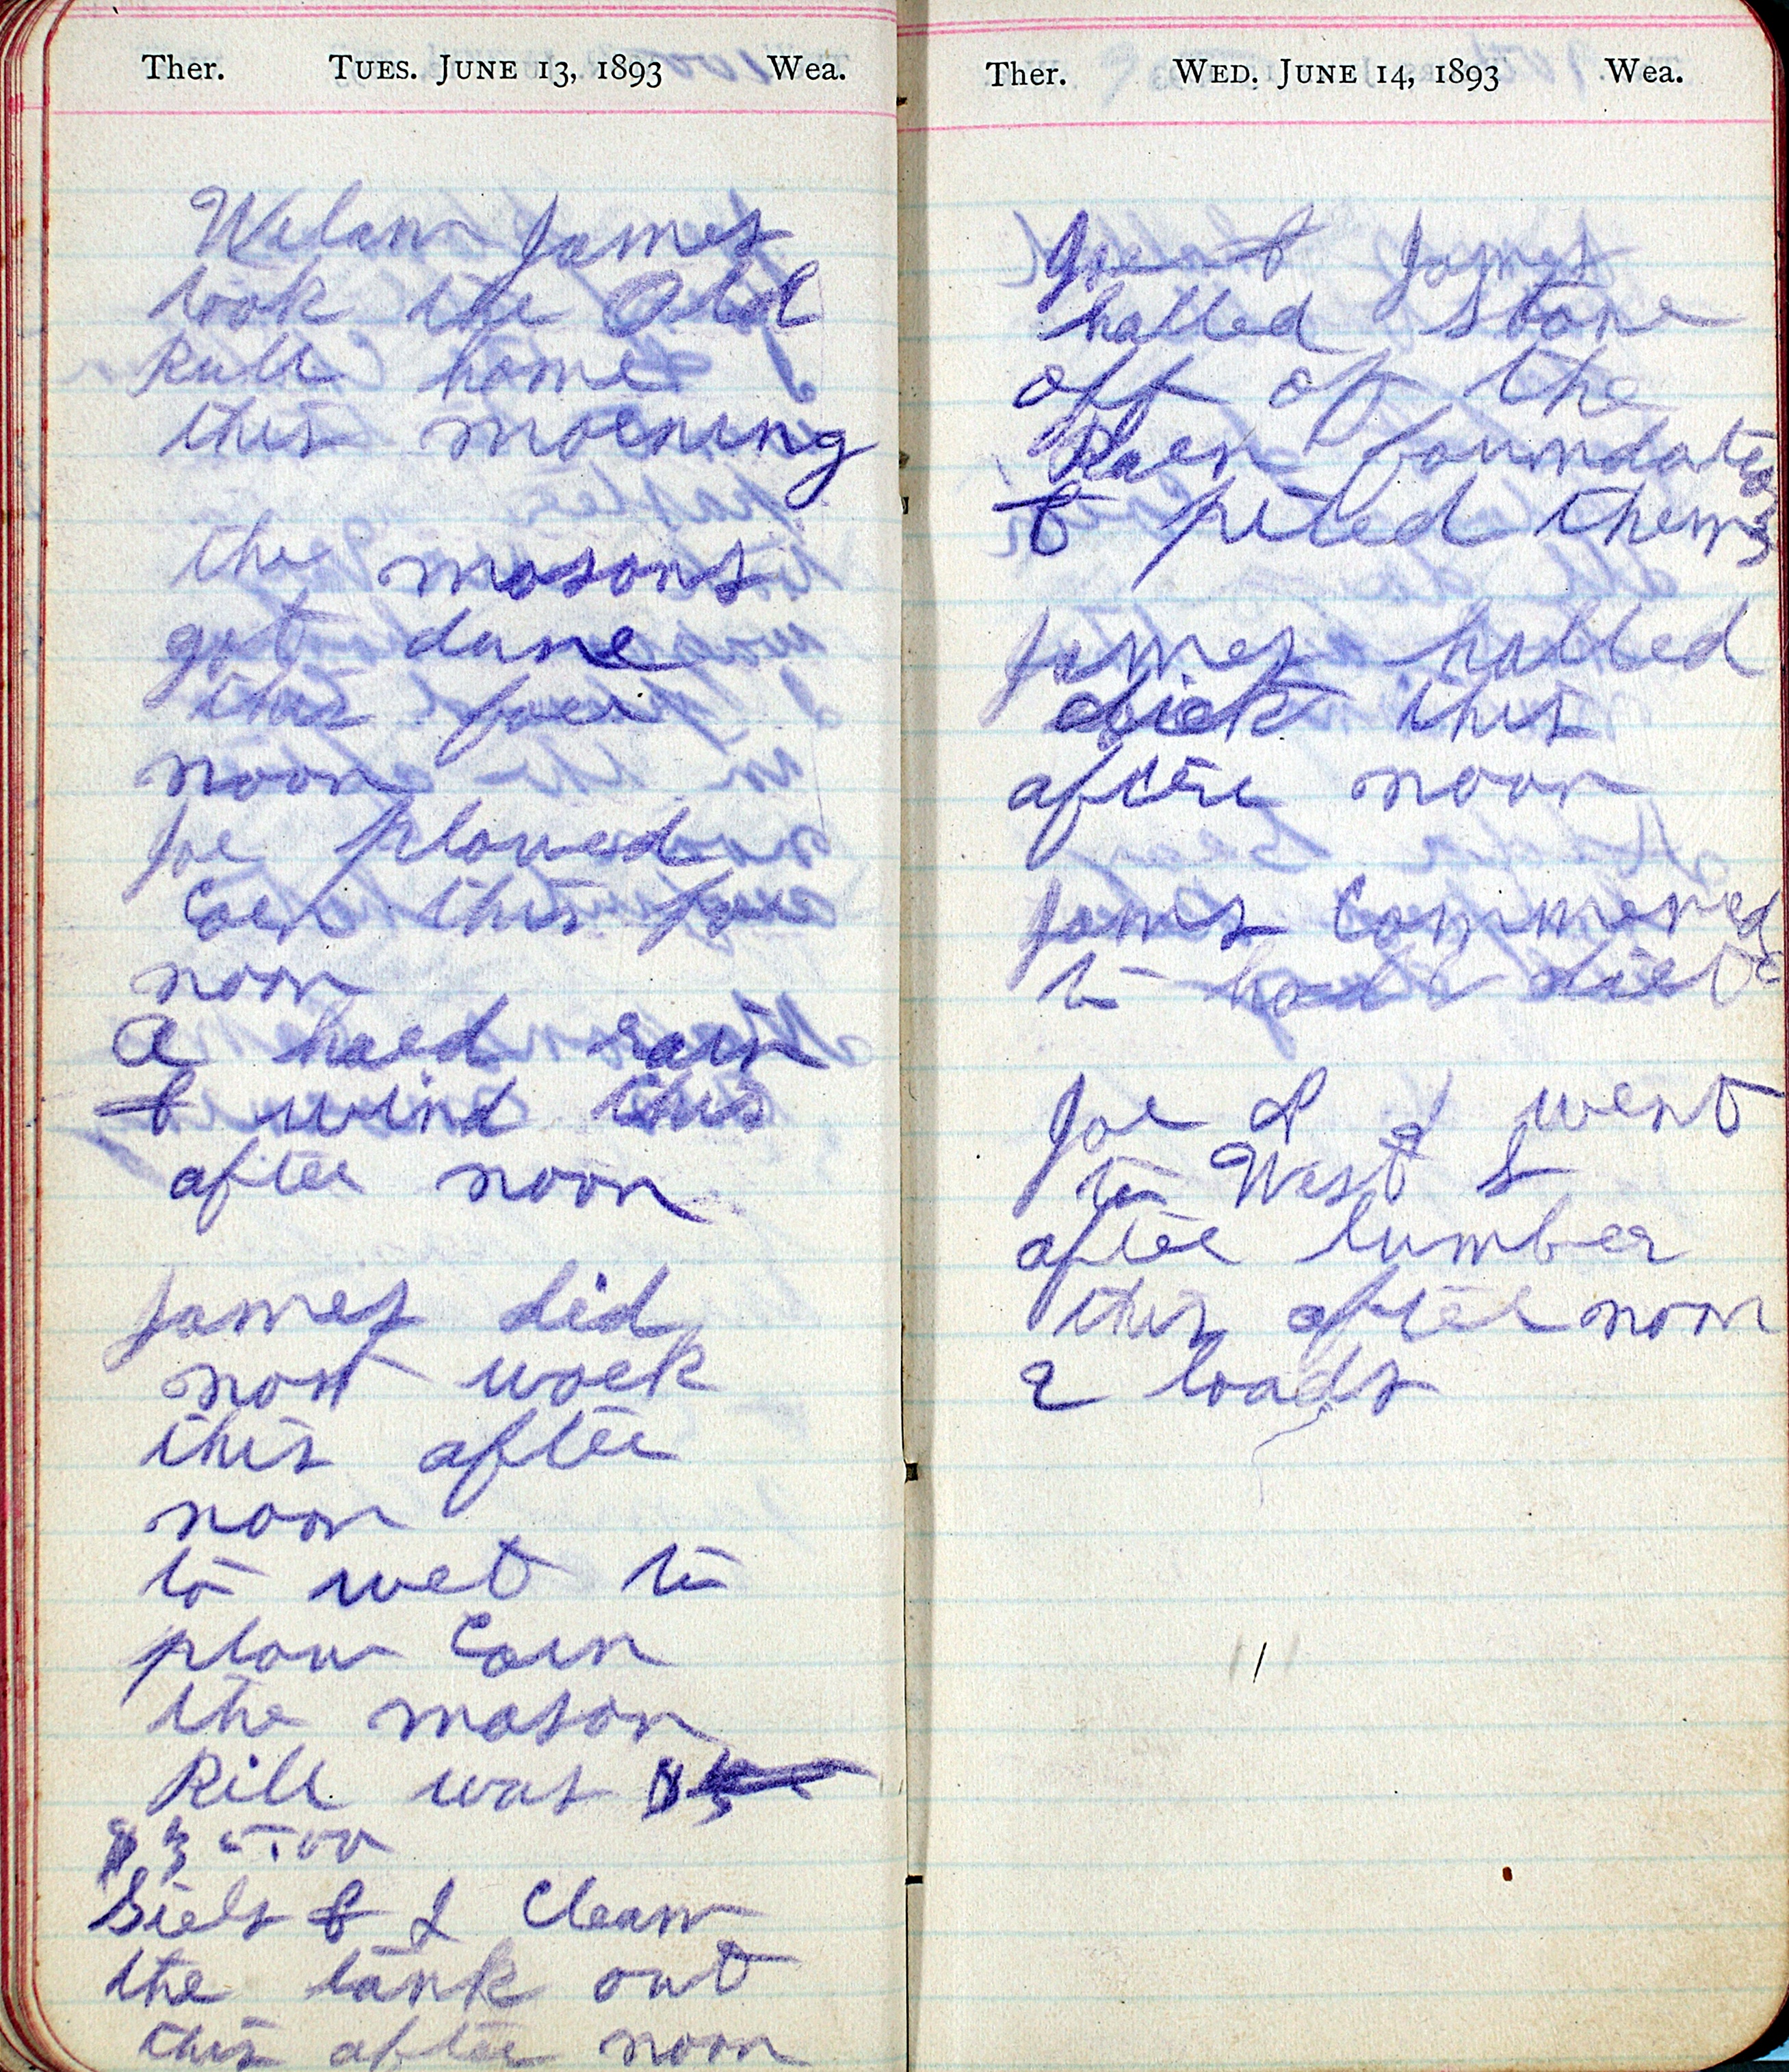 Ther. TUES. JUNE 13, 1893 Wea.
James
took the Old
Bull home
this morning
the masons
got dune
this for
noon
Joe plowed
Corn this fore
noon
A hard rain
& wind this
after noon
James did
not work
this after
noon
to wet to
plow Corn
the mason
Bill was
$35.00
& I Clean
the tank out
this after noon
Ther. WED. JUNE 14, 1893 Wea.
Joe & James
halled stone
off of the
Barn foundatio
& piled them
James halled
dirt this
after noon
James Commenced
to haul dirt
Joe & I went
to West L
after lumber
this after noon
2 loads